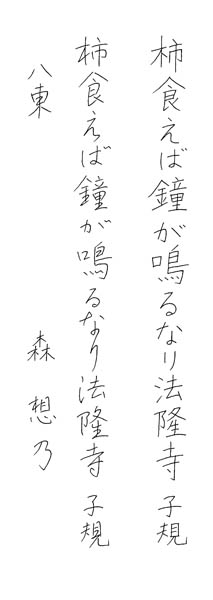 柿食えば鐘が鳴るなり法隆寺 子規
柿食えば鐘が鳴るなり法隆寺 子規
八東 森 想乃